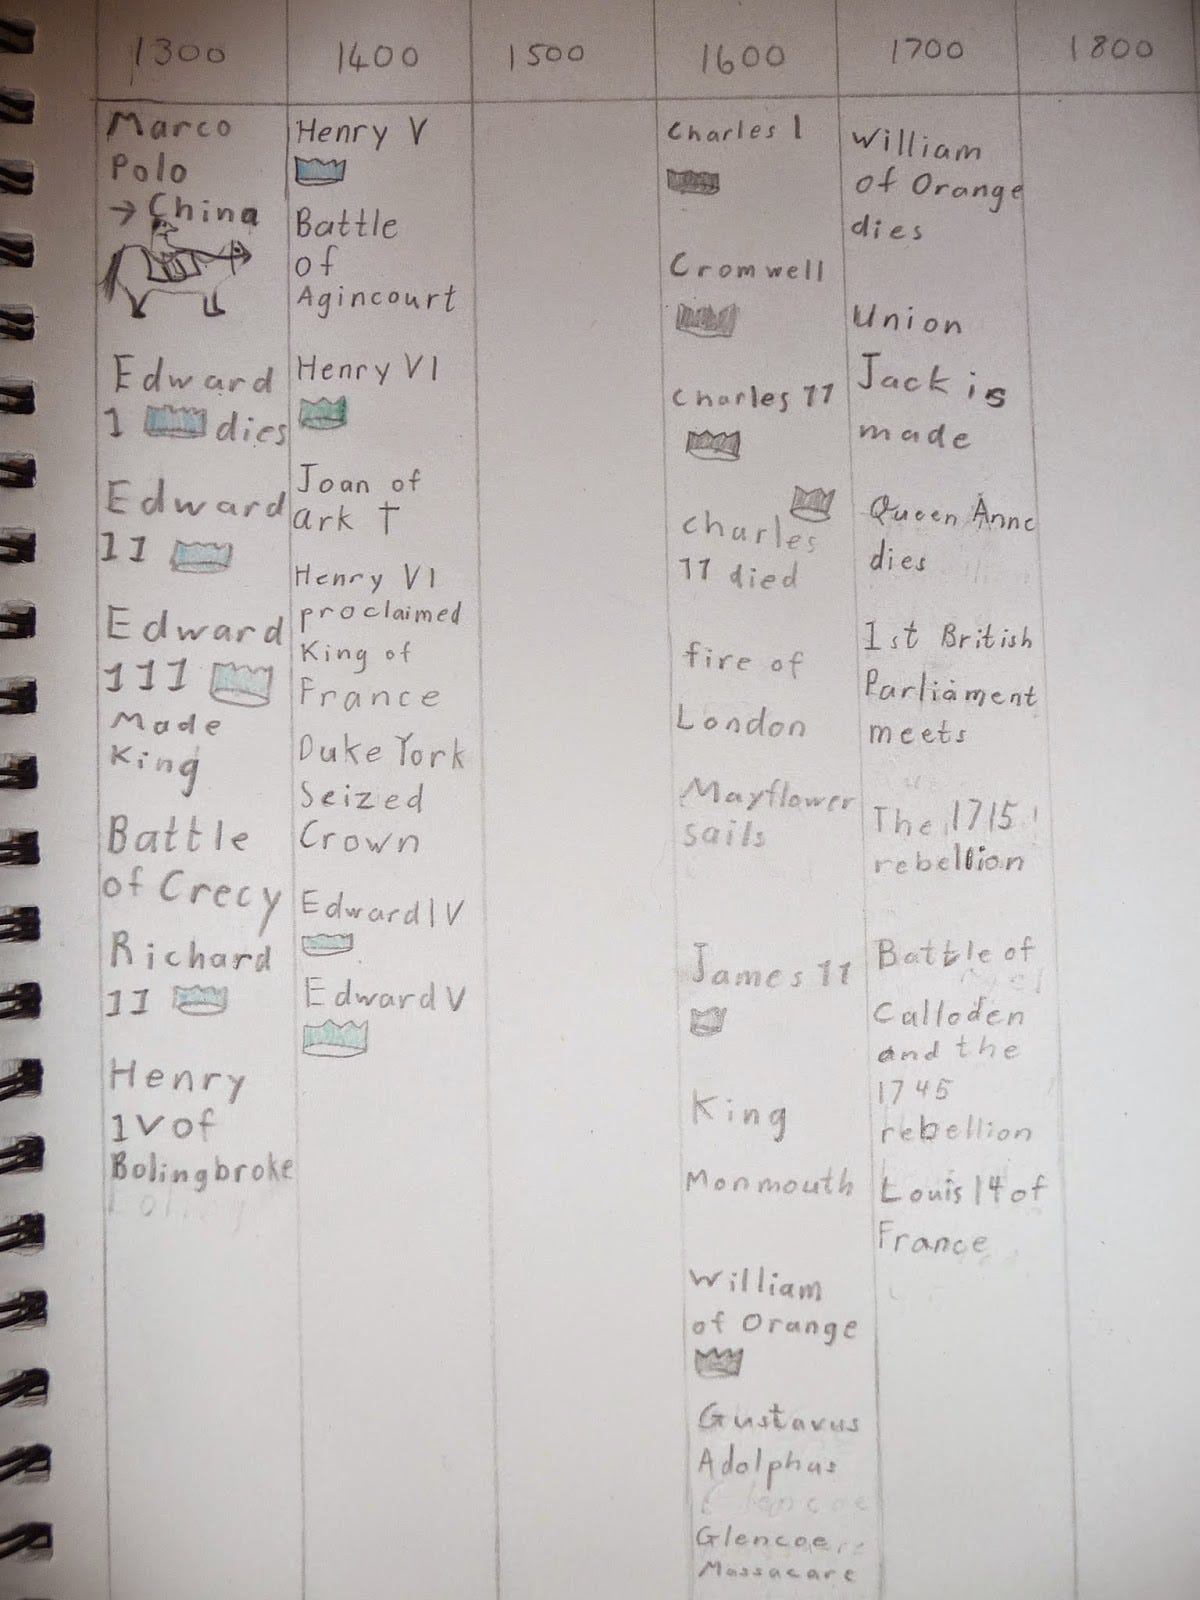 1300 1400 1500 1600 1700 1800
Marco
Polo
→ China
Edward
1 dies
Edward
11
Edward
111
Made
King
Battle
of Crecy
Richard
11
Henry
1V of
Bolingbroke
Henry V
Battle
of
Agincourt
Henry VI
Joan of
Ark †
Henry VI
proclaimed
King of
France
Duke York
Seized
Crown
Edward IV
Edward V
Charles I
Cromwell
Charles 11
Charles
11 died
fire of
London
Mayflower
sails
James 11
King
Monmouth
William
of Orange
Gustavus
Adolphus
Glencoe
Glencoe
Massacare
William
of Orange
dies
Union
Jack is
made
Queen Anne
dies
1st British
Parliament
meets
The 1715
rebellion
Battle of
Calloden
and the
1745
rebellion
Louis 14 of
France